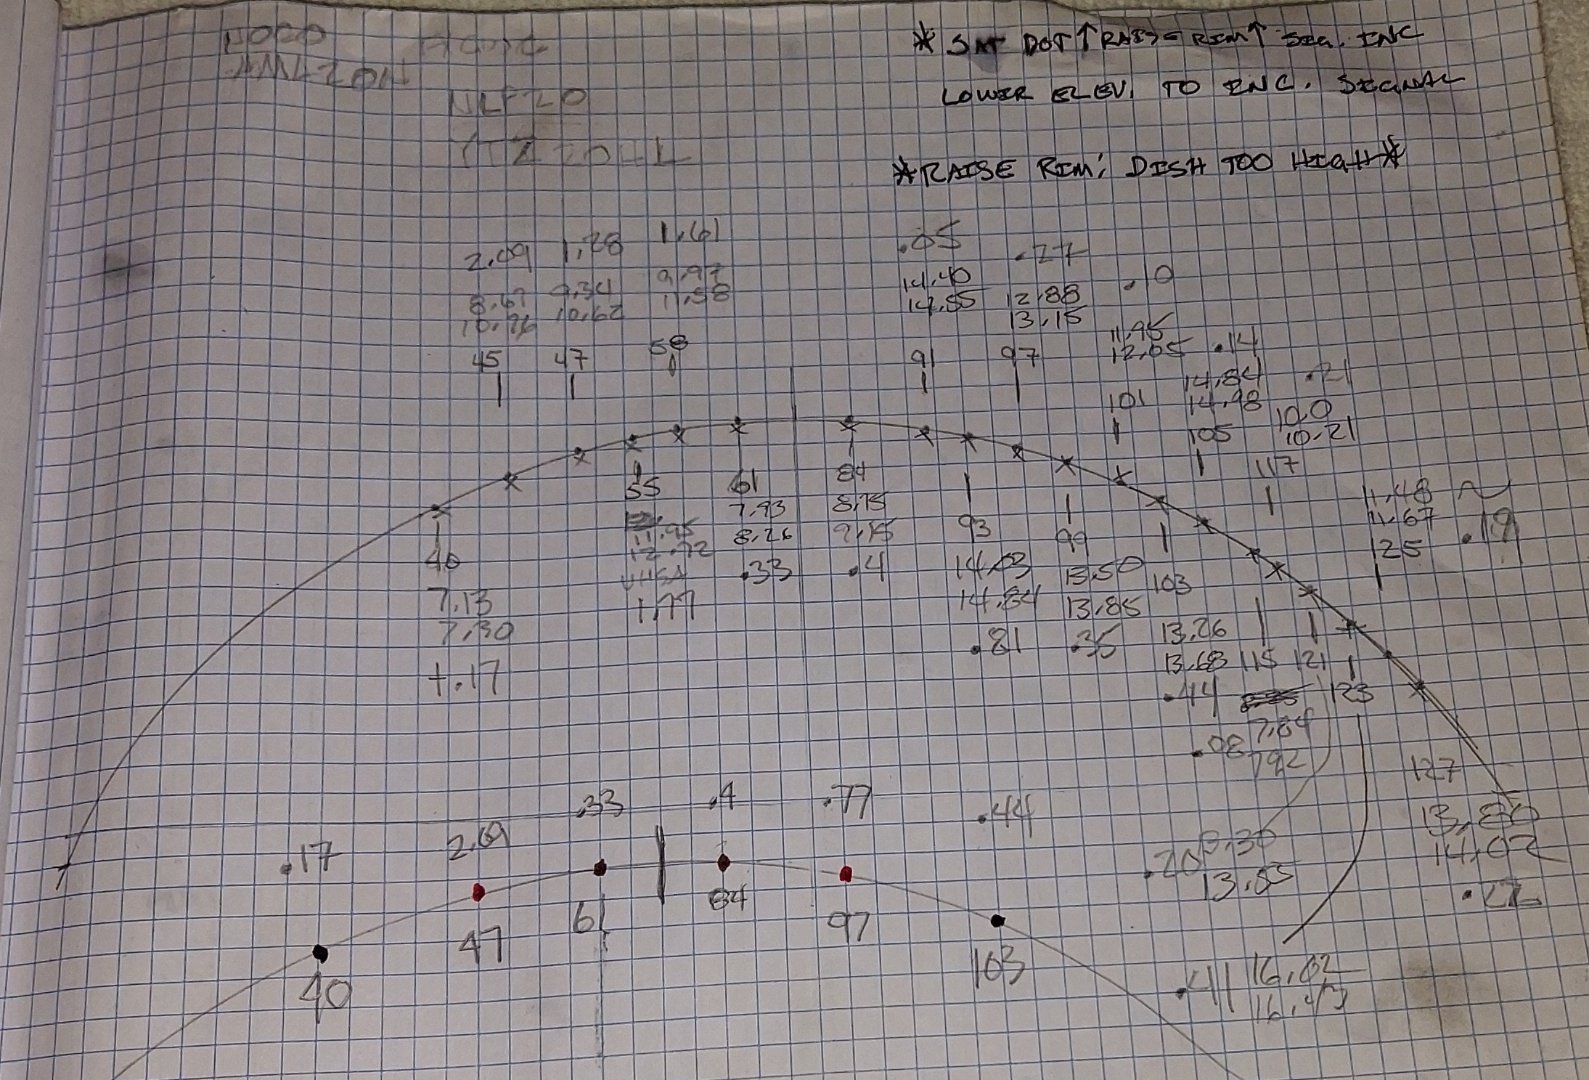 * SAT DOT ↑ RAISE RIM ↑ SIG. INC
LOWER ELEV. TO INC. SIGNAL
*RAISE RIM; DISH TOO HIGH*
1.61
2.09 1.28
9.97
8.67 9.34 11.58
10.76 10.62
45 47 58
.05 .27
14.40
14.55 12.88 .10
13.15
11.95
91 97 12.05 .14
14.84 .21
101 14.98
10.0
105 10.21
117
55 61 84
7.93 8.75
11.95 8.26 9.15
12.72
.33 .4
1.77
11.48
11.67
125 .19
93 99
14.03 13.50 103
14.84 13.85
.81 .35 13.26
13.68 115 121
.44 123
7.84
.08 7.92
40
7.13
7.30
+.17
127
13.80
14.02
.22
.20
13.53
.41 16.02
16.43
.17 2.09 .33 .4 .77 .44
40 47 61 84 97 103